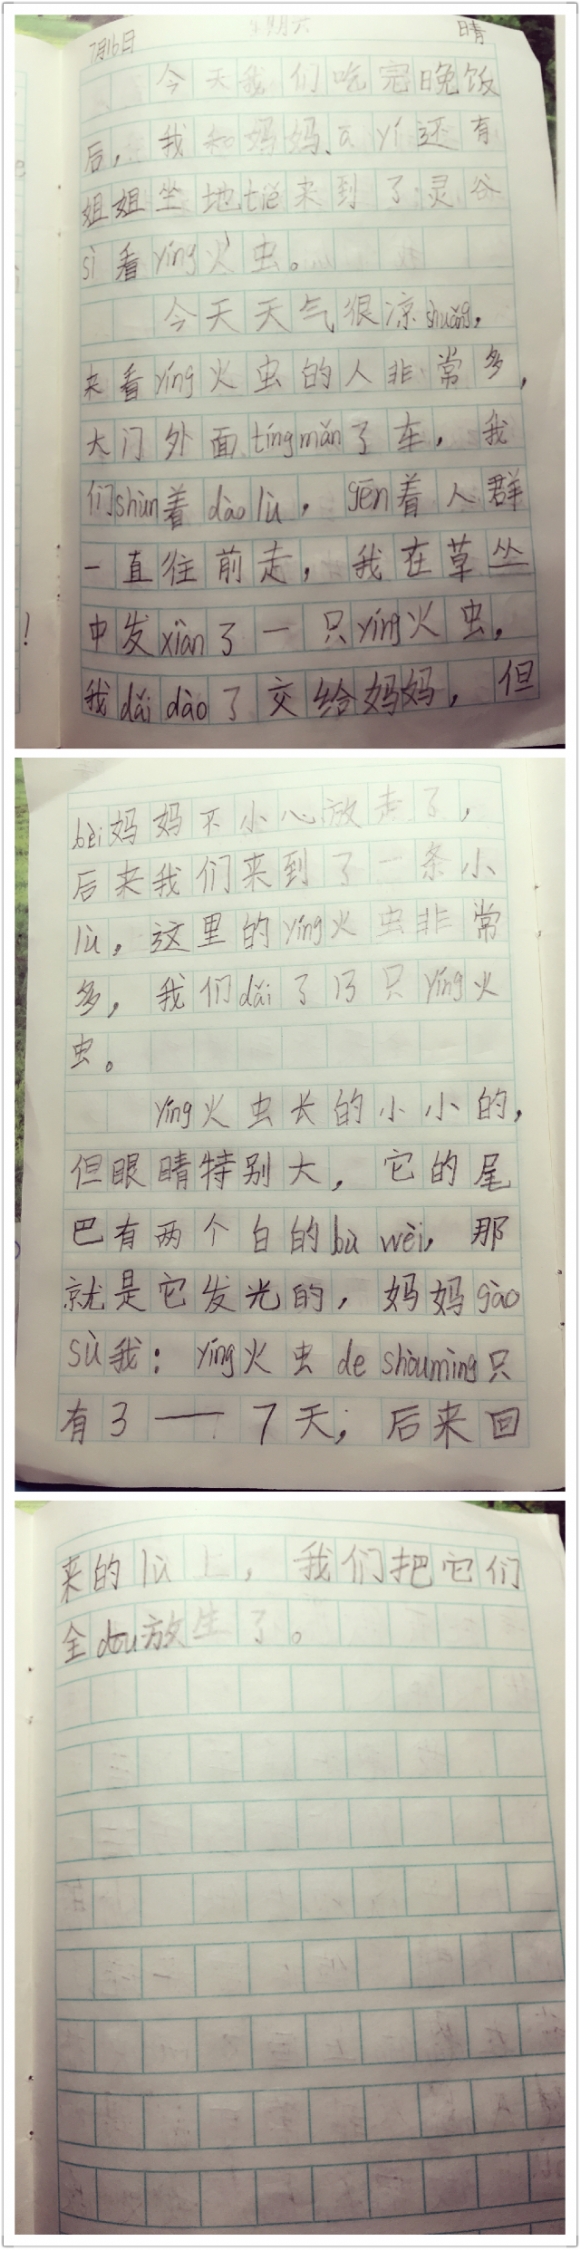 7月16日 星期六 晴
今天我们吃完晚饭
后，我和妈妈、大yí还有
姐姐坐地tiě来到了灵谷
sì看yíng火虫。
今天天气很凉shuǎng，
来看yíng火虫的人非常多，
大门外面tíngmǎn了车，我
们shùn着dàolù，gēn着人群
一直往前走，我在草丛
中发xiàn了一只yíng火虫，
我dǎi dào了交给妈妈，但
bèi妈妈不小心放走了，
后来我们来到了一条小
lù，这里的yíng火虫非常
多，我们dǎi了13只yíng火
虫。
yíng火虫长的小小的，
但眼睛特别大，它的尾
巴有两个白的bù wèi，那
就是它发光的，妈妈gào
sù我：yíng火虫de shòumìng只
有3——7天，后来回
来的lù上，我们把它们
全dōu放生了。